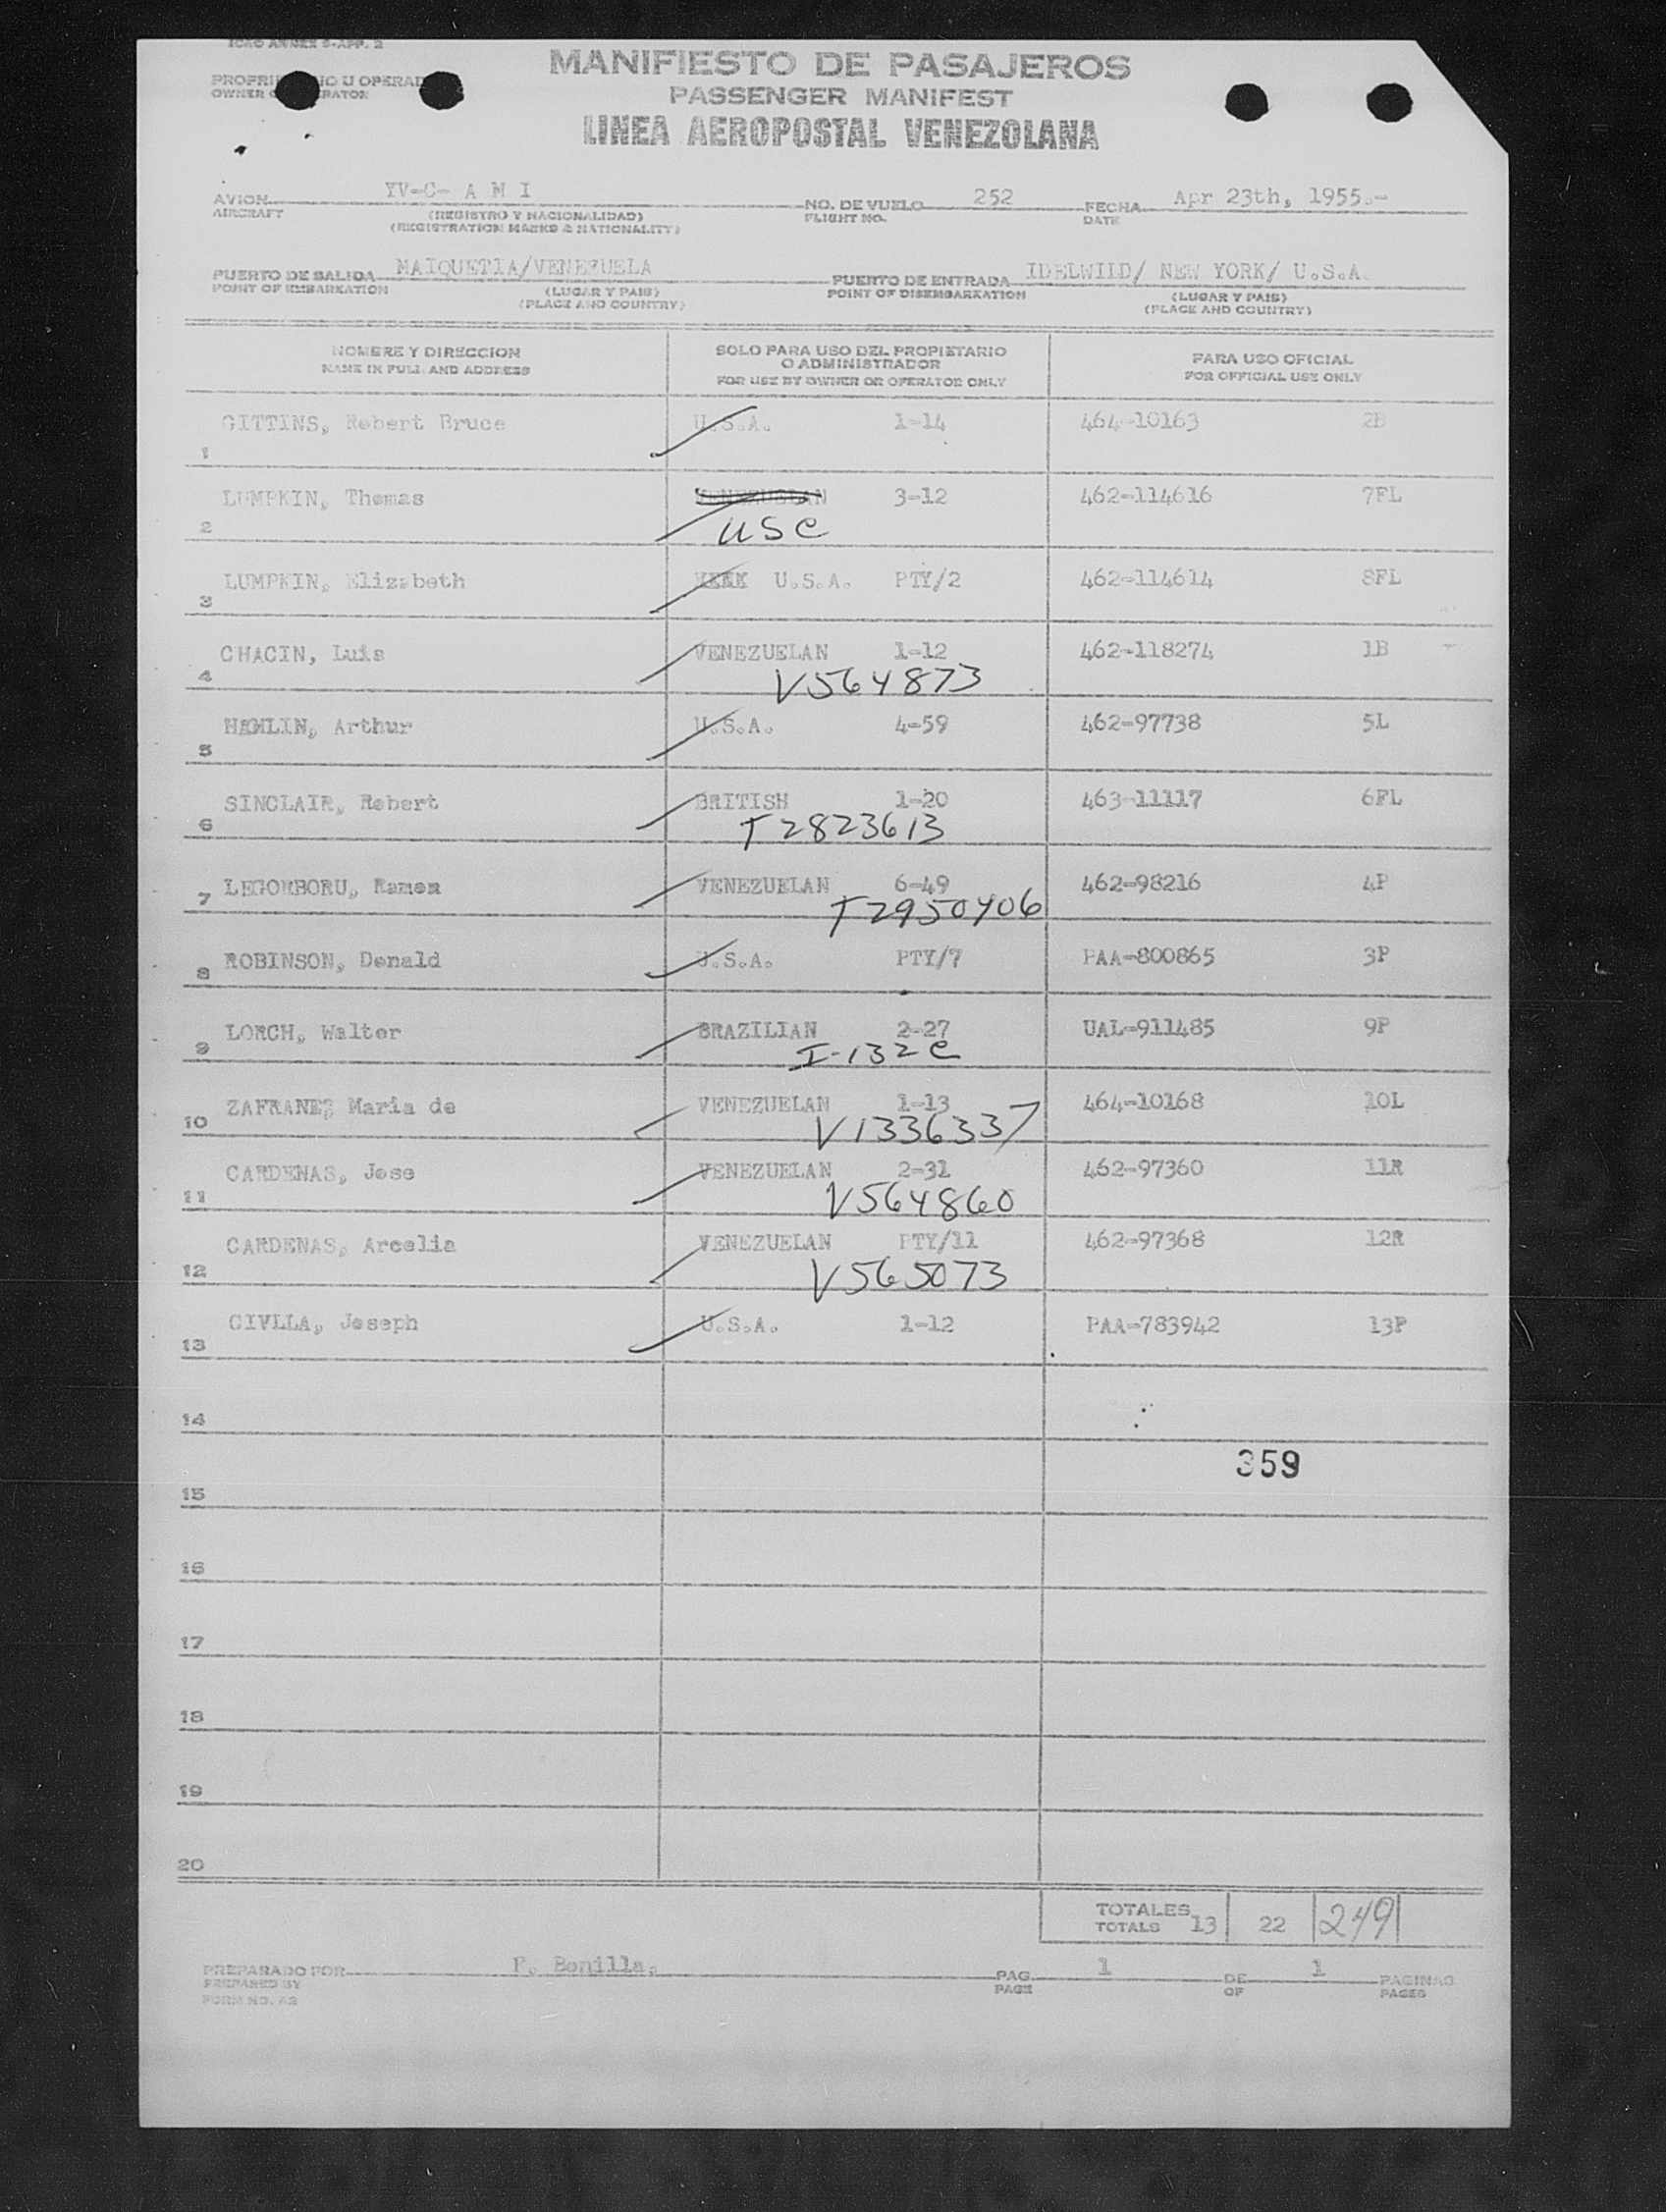 ICAO ANNEX 9-APP. 2
MANIFIESTO DE PASAJEROS
OWNER
PASSENGER MANIFEST
LINEA AEROPOSTAL VENEZOLANA
AVION YV-C- A M I NO. DE VUELO 252 FECHA Apr 23th, 1955.-
AIRCRAFT (REGISTRO Y NACIONALIDAD) FLIGHT NO. DATE
(REGISTRATION MARKS & NATIONALITY)
PUERTO DE SALIDA MAIQUETIA/VENEZUELA PUERTO DE ENTRADA IDELWILD/ NEW YORK/ U.S.A.
POINT OF EMBARKATION (LUGAR Y PAIS) POINT OF DISEMBARKATION (LUGAR Y PAIS)
(PLACE AND COUNTRY) (PLACE AND COUNTRY)
NOMBRE Y DIRECCION SOLO PARA USO DEL PROPIETARIO O ADMINISTRADOR PARA USO OFICIAL
NAME IN FULL AND ADDRESS FOR USE BY OWNER OR OPERATOR ONLY FOR OFFICIAL USE ONLY
1 GITTINS, Robert Bruce U.S.A. 1-14 464-10163 2B
2 LUMPKIN, Thomas VENEZUELAN 3-12 462-114616 7FL
USC
3 LUMPKIN, Elizabeth U.S.A. PTY/2 462-114614 8FL
4 CHACIN, Luis VENEZUELAN 1-12 462-118274 1B
V564873
5 HAMLIN, Arthur U.S.A. 4-59 462-97738 5L
6 SINCLAIR, Robert BRITISH 1-20 463-11117 6FL
T2823613
7 LEGORBORU, Ramon VENEZUELAN 6-49 462-98216 4P
T2950406
8 ROBINSON, Donald U.S.A. PTY/7 PAA-800865 3P
9 LORCH, Walter BRAZILIAN 2-27 UAL-911485 9P
I-132C
10 ZAFRANE, Maria de VENEZUELAN 1-13 464-10168 10L
V1336337
11 CARDENAS, Jose VENEZUELAN 2-31 462-97360 11R
V564860
12 CARDENAS, Arcelia VENEZUELAN PTY/11 462-97368 12R
V565073
13 CIVLLA, Joseph U.S.A. 1-12 PAA-783942 13P
14
359
15
16
17
18
19
20
TOTALES
TOTALS 13 22 249
PREPARADO POR P. Bonilla. PAG. 1 DE 1 PAGINAS
PREPARED BY PAGE OF PAGES
FORM NO. A2